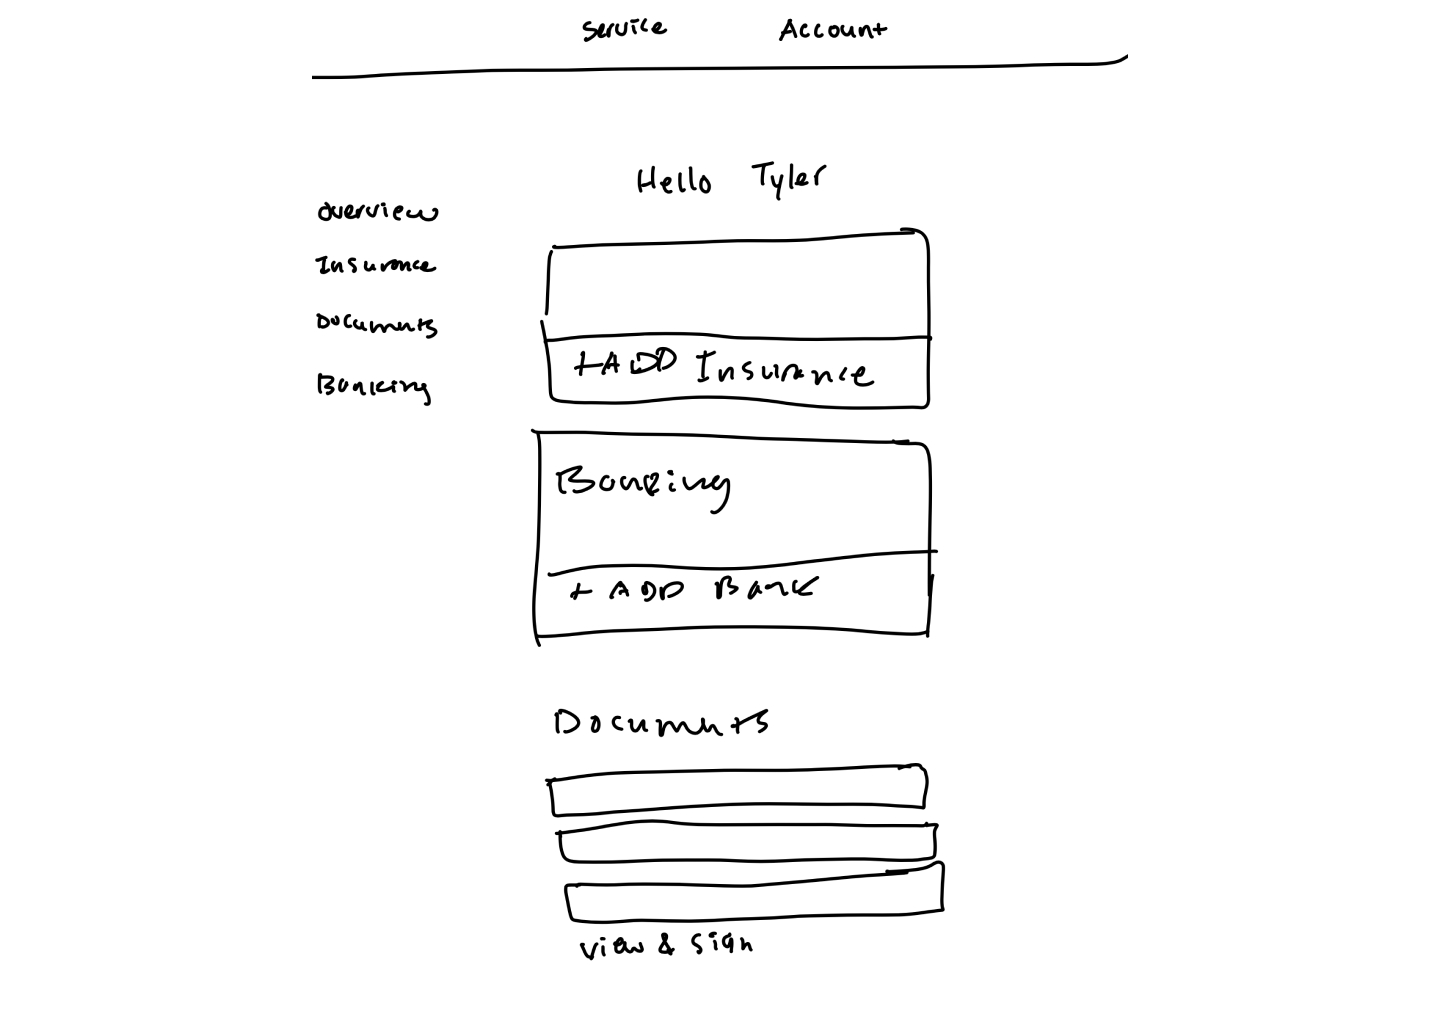 Service Account
Hello Tyler
Overview
Insurance
Documents
Banking
+ ADD Insurance
Banking
+ ADD Bank
Documents
View & Sign